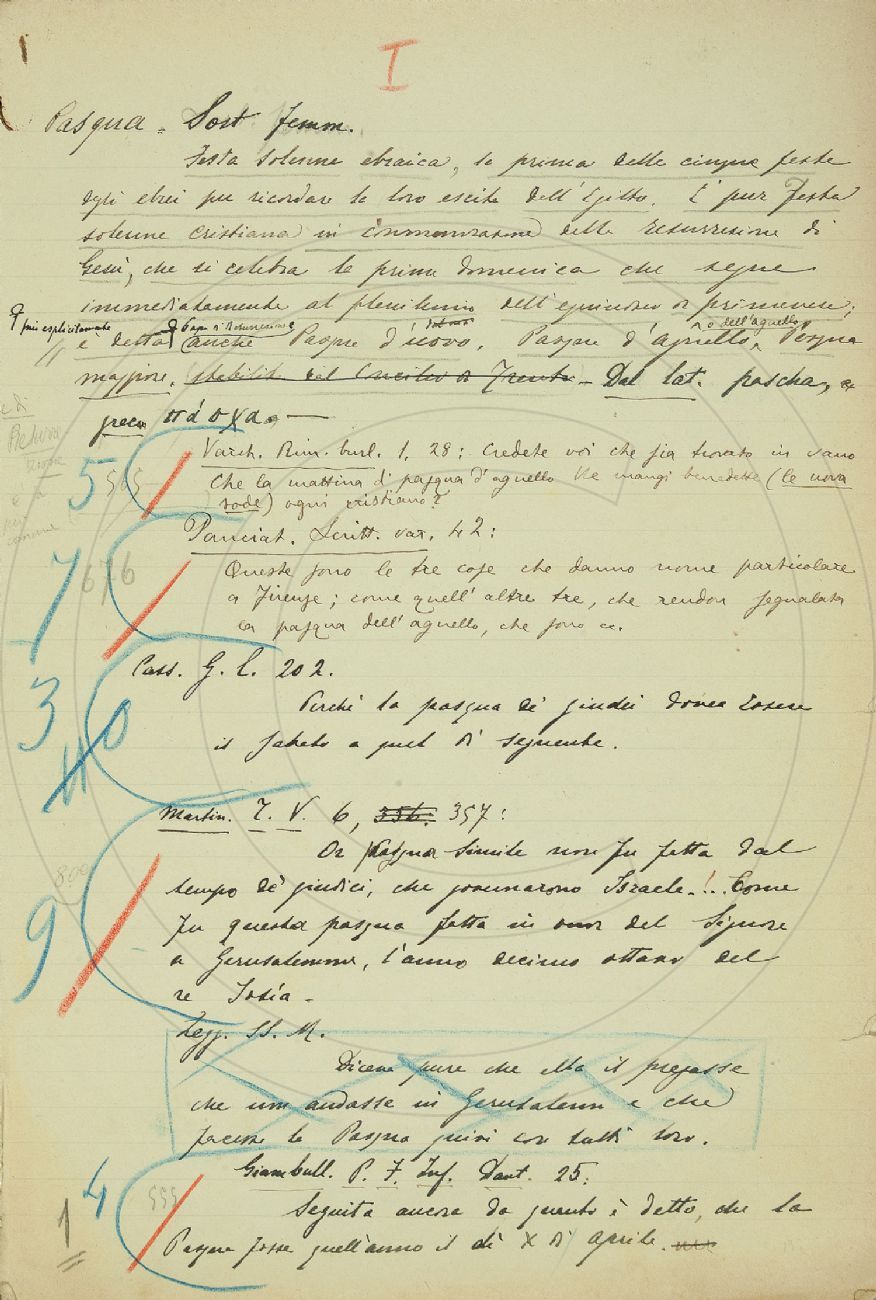 I
Pasqua. Sost femm.
Festa solenne ebraica, la prima delle cinque feste
degli ebrei per ricordare la loro escita dell'Egitto. È pur Festa
solenne cristiana in commemorazione della resurrezione di
Gesù, che si celebra la prima domenica che segue
immediatamente al plenilunio dell'equinozio di primavera;
più esplicitamente
è detta anche Pasqua d'uovo, Pasqua d'agnello, o dell'agnello, Pasqua
maggiore. stabilita dal Concilio di Trento - Dal lat. pascha,
greco πάσχα. —
5 565
Varch. Rim. burl. 1, 28: Credete voi che sia trovato in vano
Che la mattina di pasqua d'agnello Ne mangi benedette (le uova
sode) ogni cristiano?
Panciat. Scritt. var. 42:
7 676
Queste sono le tre cose che danno nome particolare
a Firenze; come quell'altre tre, che rendon segnalata
la pasqua dell'agnello, che sono ec.
Cass. G. L. 202.
3
Perchè la pasqua de' giudei dovea essere
il sabato a quel dì seguente.
Martin. T. V. 6, 356. 357:
Or Pasqua simile non fu fatta dal
tempo de' giudici, che governarono Israele!.. Come
9
fu questa pasqua fatta in onor del Signore
a Gerusalemme, l'anno decimo ottavo del
re Josía -
Legg. SS. M.
Dicea pure che ella il pregasse
che non andasse in Gerusalem e che
facesse la Pasqua quivi con tutti loro.
Giambull. P. F. Inf. Dant. 25:
4 555
1
Seguita ancora da quanto è detto, che la
Pasqua fosse quell'anno il dì X di Aprile.